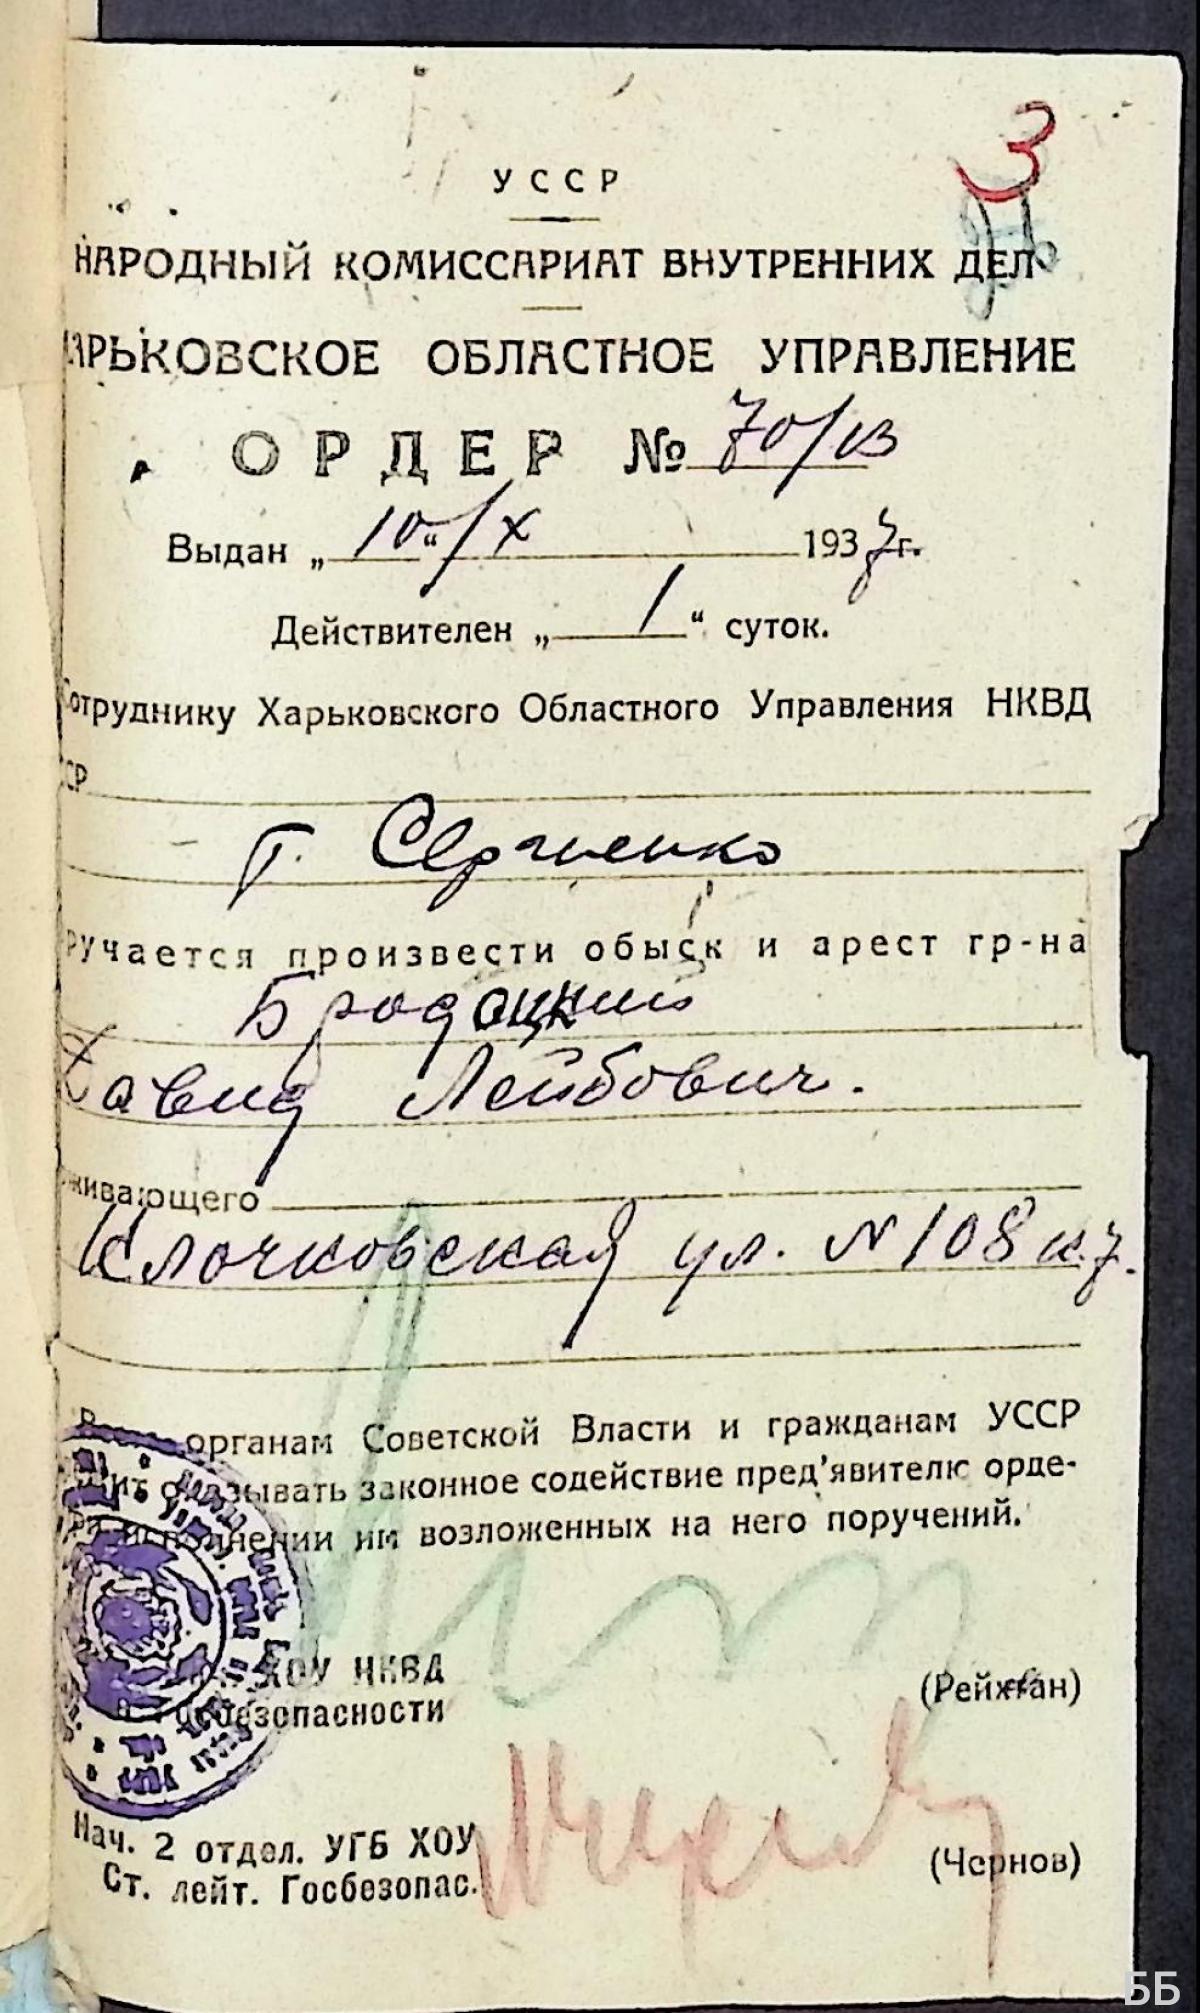 3
УССР
НАРОДНЫЙ КОМИССАРИАТ ВНУТРЕННИХ ДЕЛ
АРЬКОВСКОЕ ОБЛАСТНОЕ УПРАВЛЕНИЕ
ОРДЕР № 70/
Выдан „10“/X 1937г.
Действителен „1“ суток.
Сотруднику Харьковского Областного Управления НКВД
СР
т. Сергиенко
ручается произвести обыск и арест гр-на
Бродоцкий
Давид Лейбович.
живающего
Клочковская ул. N 108 к.7.
органам Советской Власти и гражданам УССР
оказывать законное содействие пред'явителю орде-
исполнении им возложенных на него поручений.
ХОУ НКВД
Госбезопасности
(Рейхман)
Нач. 2 отдел. УГБ ХОУ
Ст. лейт. Госбезопас.
(Чернов)
ББ